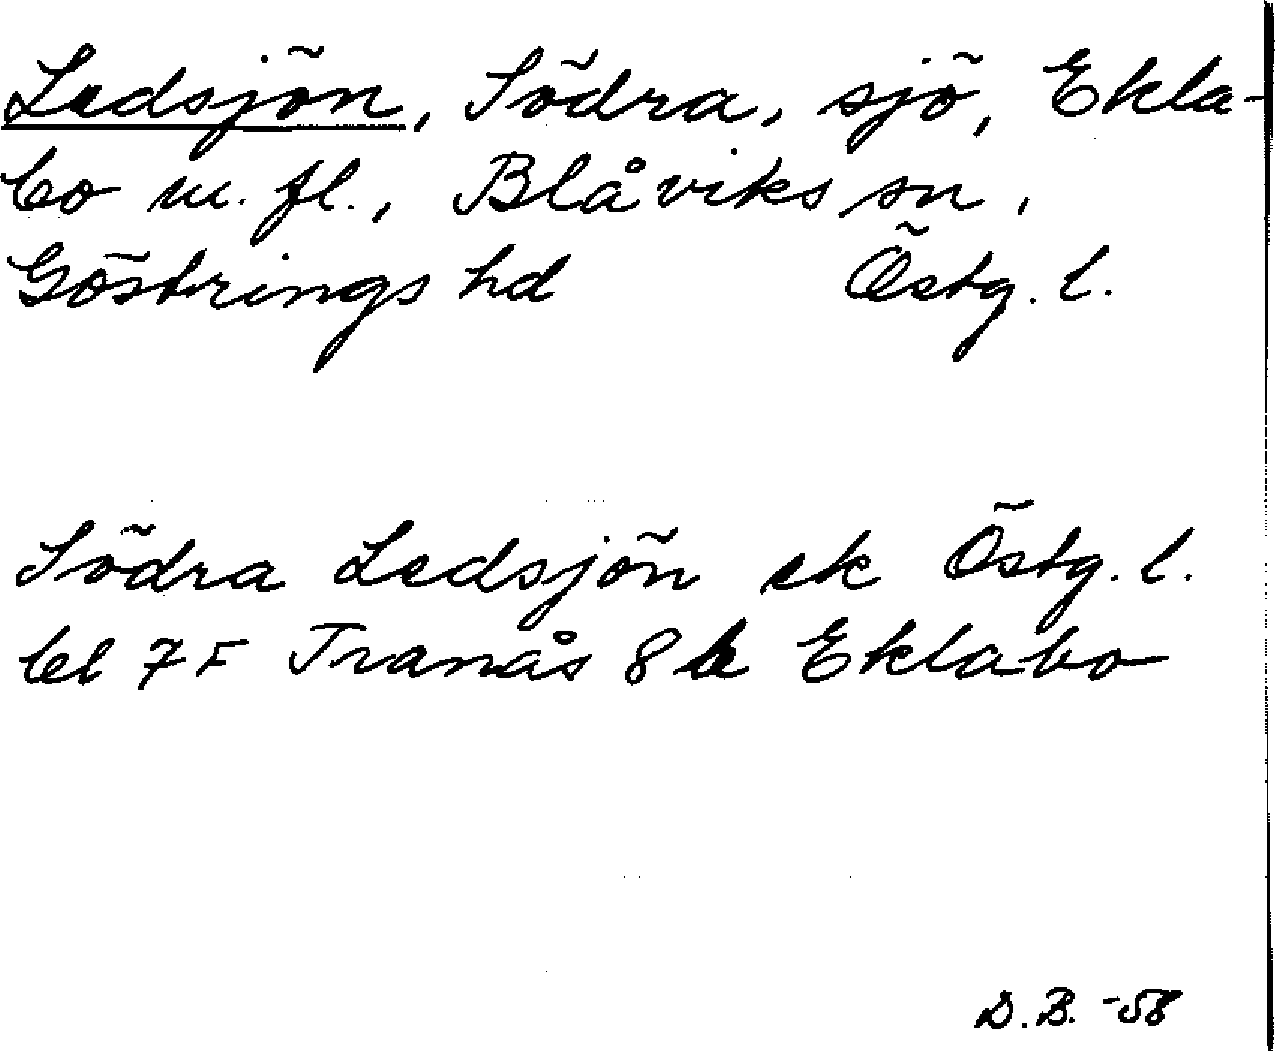 Ledsjön, Södra, sjö, Ekla-
bo m. fl., Blåviks sn,
Göstrings hd Östg. l.
Södra Ledsjön ek Östg. l.
bl 7 F Tranås 8 b Eklabo
D. B. -58